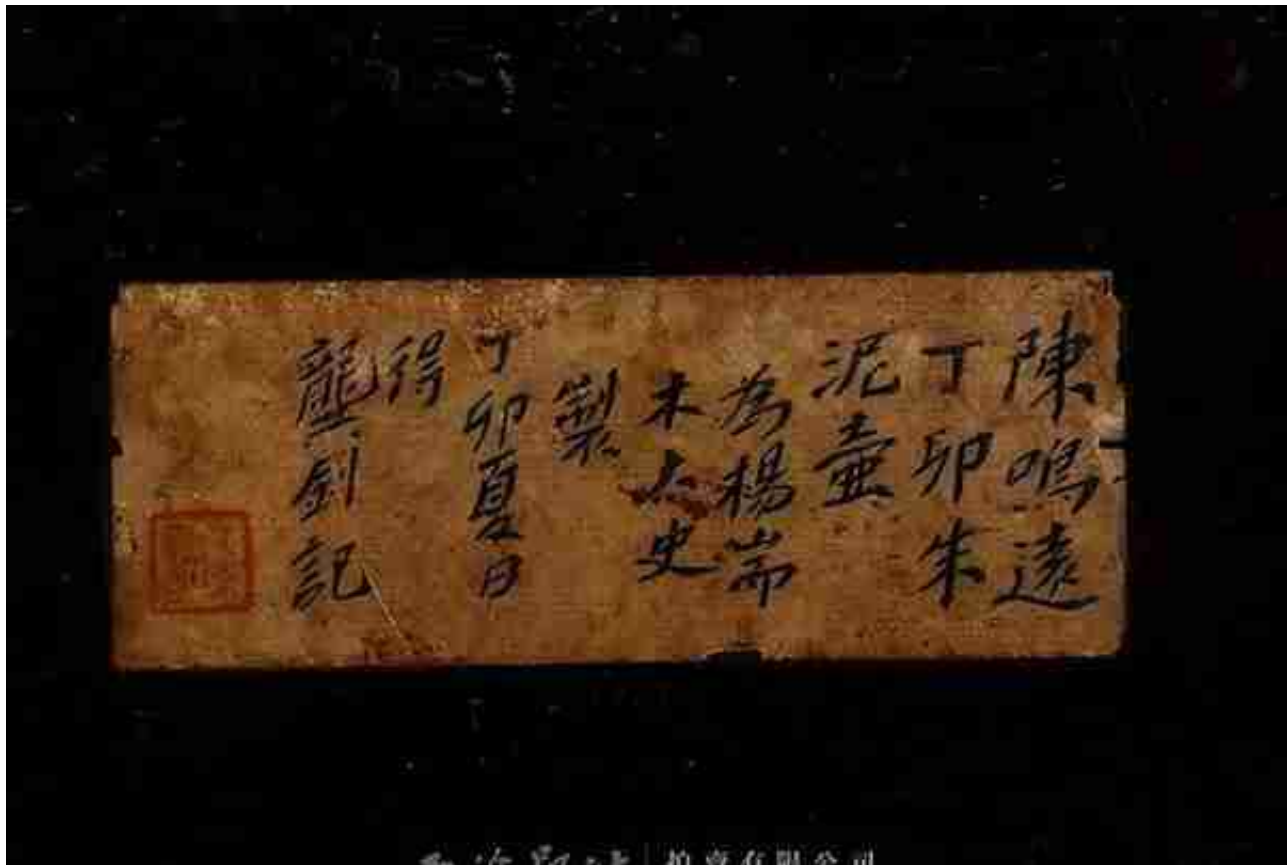 陳鳴遠
丁卯朱
泥壺
為楊耑
木太史
製
丁卯夏日
得
龔釗記
拍賣有限公司